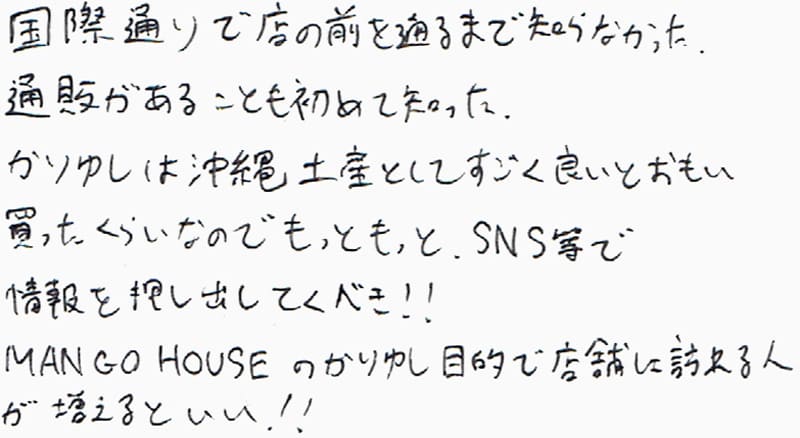 国際通りで店の前を通るまで知らなかった.
通販があることも初めて知った.
かりゆしは沖縄土産としてすごく良いとおもい
買ったくらいなのでもっともっと、SNS等で
情報を押し出してくべき!!
MANGO HOUSE のかりゆし目的で店舗に訪れる人
が増えるといい!!